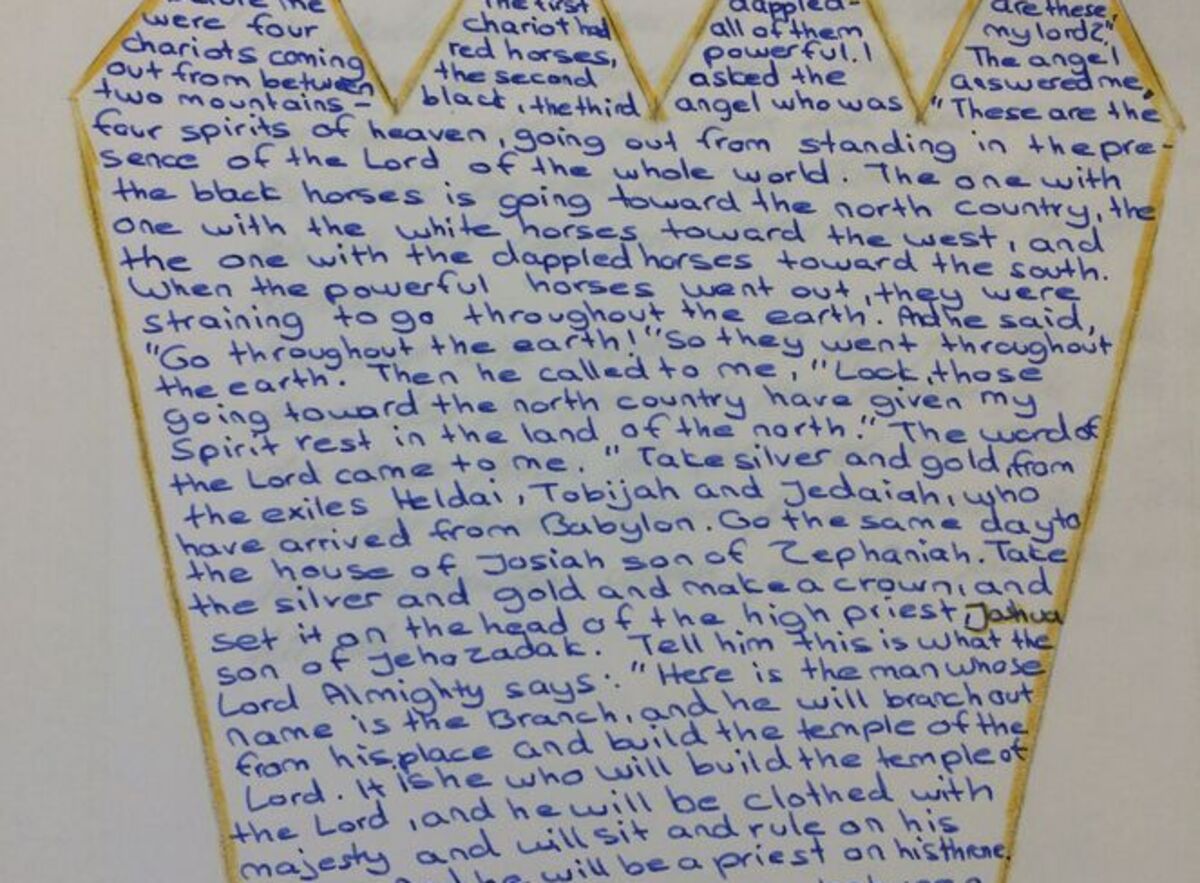 were four
chariots coming
out from between
two mountains -
The first
chariot had
red horses,
the second
black, the third
dappled -
all of them
powerful. I
asked the
angel who was
are these,
my lord?"
The angel
answered me,
"These are the
four spirits of heaven, going out from standing in the pre-
sence of the Lord of the whole world. The one with
the black horses is going toward the north country, the
one with the white horses toward the west, and
the one with the dappled horses toward the south.
When the powerful horses went out, they were
straining to go throughout the earth. And he said,
"Go throughout the earth!" So they went throughout
the earth. Then he called to me, "Look, those
going toward the north country have given my
Spirit rest in the land of the north." The word of
the Lord came to me. "Take silver and gold from
the exiles Heldai, Tobijah and Jedaiah, who
have arrived from Babylon. Go the same day to
the house of Josiah son of Zephaniah. Take
the silver and gold and make a crown, and
set it on the head of the high priest Joshua
son of Jehozadak. Tell him this is what the
Lord Almighty says: "Here is the man whose
name is the Branch, and he will branch out
from his place and build the temple of the
Lord. It is he who will build the temple of
the Lord, and he will be clothed with
majesty and will sit and rule on his
he will be a priest on his throne.